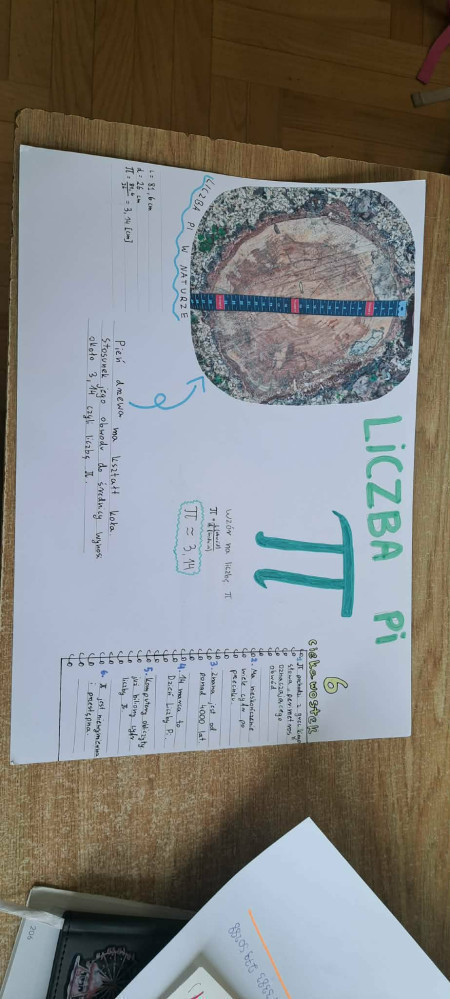 LiCZBA Pi
π
LICZBA PI W NATURZE
L = 81,6 cm
d = 26 cm
π = = 3,14 [cm]
Pień drzewa ma kształt koła
Stosunek jego obwodu do średnicy wynosi
około 3,14 czyli liczbę π.
Wzór na liczbę π
π =
π ≈ 3,14
6
ciekawostek
π pochodzi z
słowa "perimetros"
oznaczającego
obwód
2. Ma nieskończenie
wiele cyfr po
przecinku
3. Znana jest od
ponad 4000 lat.
4. 14 marca to
Dzień Liczby Pi.
5. komputery obliczyły
biliony cyfr
liczby π
6. π jest niewymierna
i przestępna
206